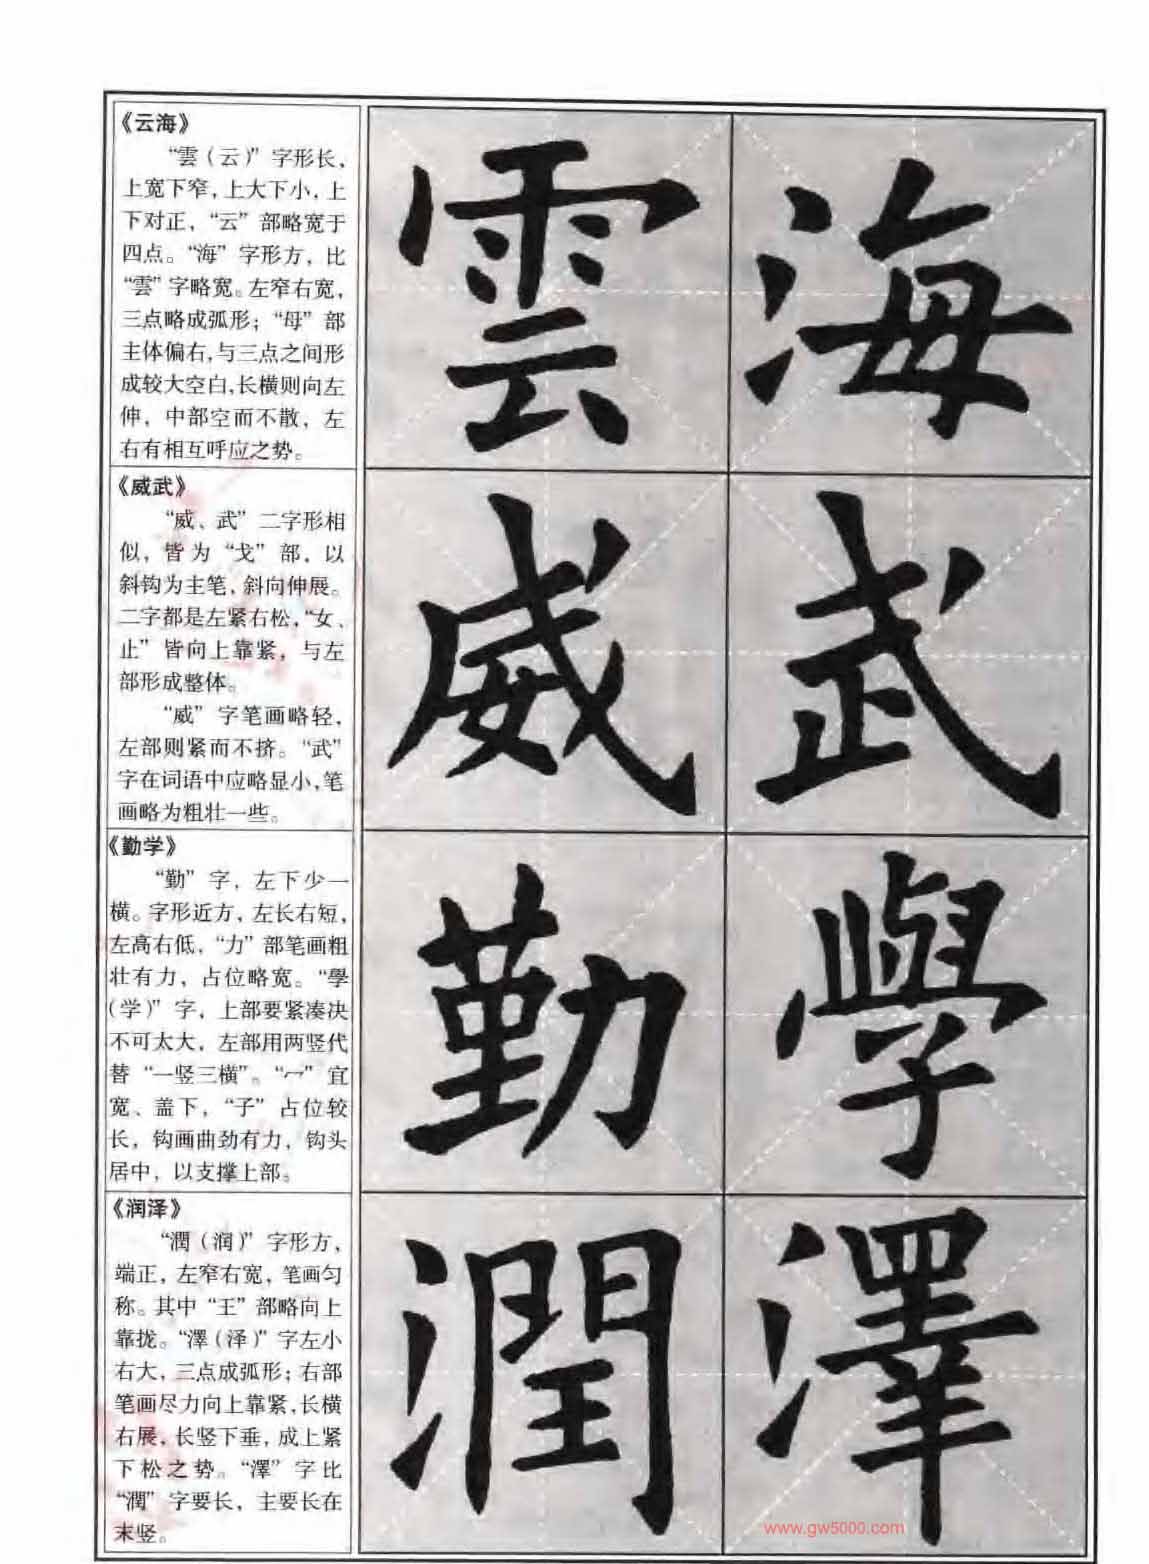 《云海》
“雲（云）”字形长，
上宽下窄，上大下小，上
下对正，“云”部略宽于
四点。“海”字形方，比
“雲”字略宽。左窄右宽，
三点略成弧形；“母”部
主体偏右，与三点之间形
成较大空白，长横则向左
伸，中部空而不散，左
右有相互呼应之势。
雲海
《威武》
“威、武”二字形相
似，皆为“戈”部，以
斜钩为主笔，斜向伸展。
二字都是左紧右松，“女、
止”皆向上靠紧，与左
部形成整体。
“威”字笔画略轻，
左部则紧而不挤。“武”
字在词语中应略显小，笔
画略为粗壮一些。
威武
《勤学》
“勤”字，左下少一
横。字形近方，左长右短，
左高右低，“力”部笔画粗
壮有力，占位略宽。“學
(学)”字，上部要紧凑决
不可太大，左部用两竖代
替“一竖三横”。“冖”宜
宽、盖下，“子”占位较
长，钩画曲劲有力，钩头
居中，以支撑上部。
勤學
《润泽》
“潤（润）”字形方，
端正，左窄右宽，笔画匀
称。其中“王”部略向上
靠拢。“澤（泽）”字左小
右大，三点成弧形；右部
笔画尽力向上靠紧，长横
右展，长竖下垂，成上紧
下松之势。“澤”字比
“潤”字要长，主要长在
末竖。
潤澤
www.gw5000.com